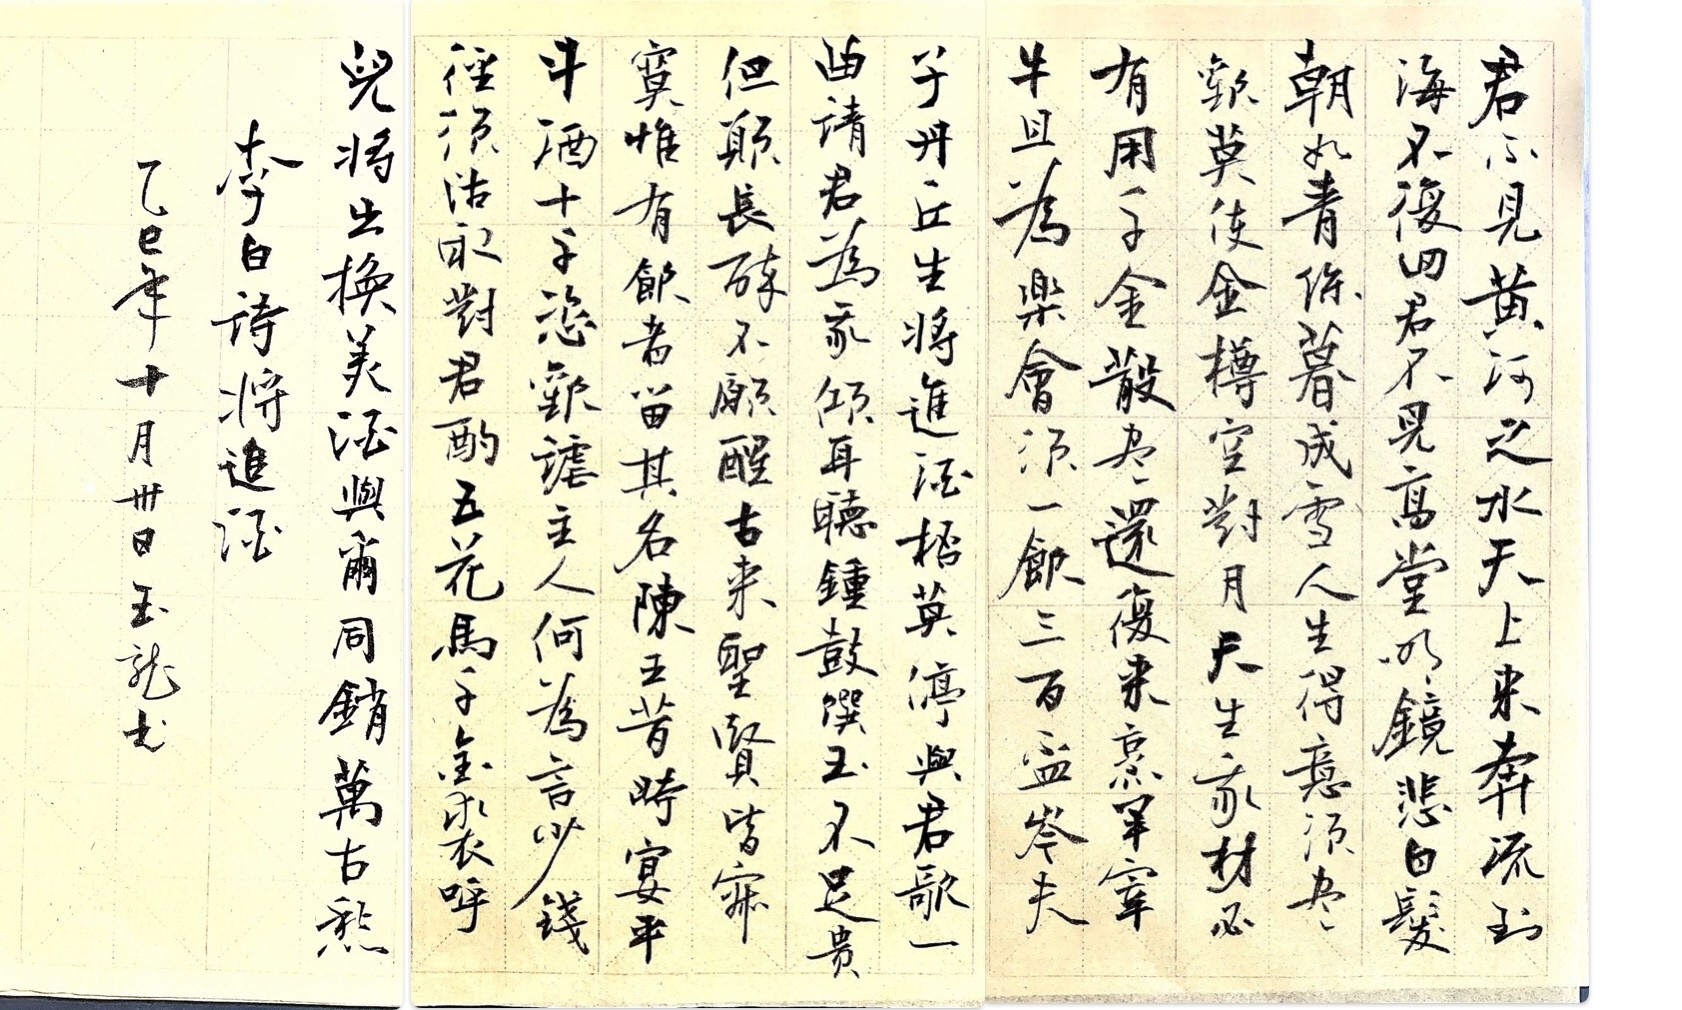 君不見黃河之水天上来奔流到
海不復回君不見高堂明鏡悲白髮
朝如青絲暮成雪人生得意須尽
歡莫使金樽空對月天生我材必
有用千金散尽還復来烹羊宰
牛且為樂會須一飲三百盃岑夫
子丹丘生將進酒杯莫停與君歌一
曲請君為我傾耳聽鍾鼓饌玉不足貴
但願長醉不願醒古来聖賢皆寂
寞惟有飲者留其名陳王昔時宴平
斗酒十千恣歡謔主人何為言少錢
徑須沽取對君酌五花馬千金裘呼
兒將出換美酒與爾同銷萬古愁
李白詩將進酒
乙巳年十月卅日玉龍书